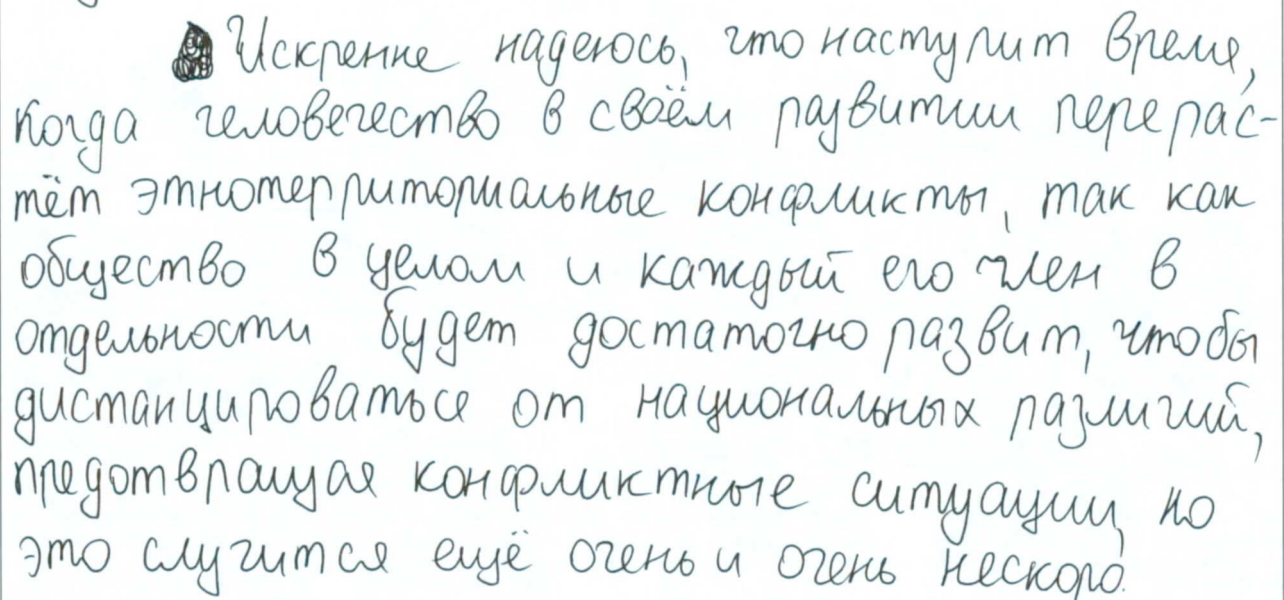 Искренне надеюсь, что наступит время,
когда человечество в своём развитии перерас-
тёт этнотерриториальные конфликты, так как
общество в целом и каждый его член в
отдельности будет достаточно развит, чтобы
дистанцироваться от национальных различий,
предотвращая конфликтные ситуации, но
это случится ещё очень и очень нескоро.